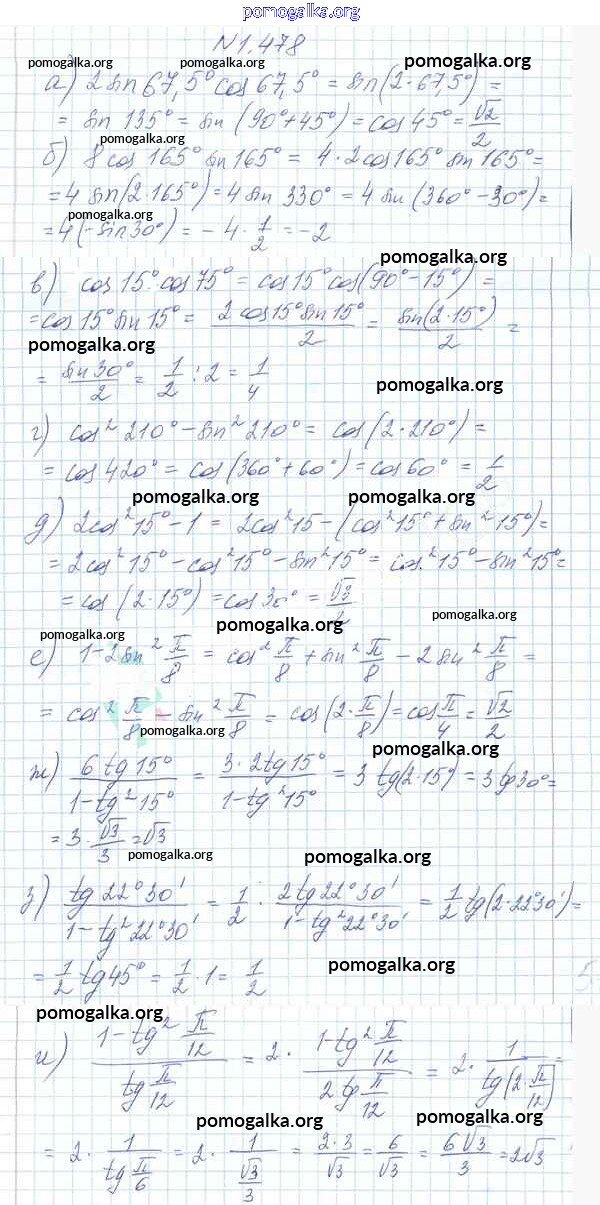 pomogalka.org
N1.478
pomogalka.org pomogalka.org
а) 2 sin 67,5° cos 67,5° = sin(2·67,5°) =
= sin 135° = sin (90°+45°) = cos 45° = √2/2
pomogalka.org
б) 8 cos 165° sin 165° = 4·2cos165° sin 165° =
= 4 sin(2·165°) = 4 sin 330° = 4 sin (360° - 30°) =
pomogalka.org
= 4(-sin30°) = -4·1/2 = -2
pomogalka.org
в) cos 15°·cos 75° = cos 15° cos(90° - 15°) =
= cos 15° sin 15° = 2 cos15° sin 15°/2 = sin(2·15°)/2 =
pomogalka.org
= sin 30°/2 = 1/2 : 2 = 1/4
pomogalka.org
г) cos² 210° - sin² 210° = cos(2·210°) =
= cos 420° = cos(360° + 60°) = cos 60° = 1/2
pomogalka.org pomogalka.org
д) 2cos²15° - 1 = 2cos²15 - (cos²15° + sin²15°) =
= 2cos²15° - cos²15° - sin²15° = cos²15° - sin²15° =
= cos(2·15°) = cos 30° = √3/2
pomogalka.org pomogalka.org
е) 1 - 2sin² π/8 = cos² π/8 + sin² π/8 - 2 sin² π/8 =
= cos² π/8 - sin² π/8 = cos(2·π/8) = cos π/4 = √2/2
pomogalka.org pomogalka.org
ж) 6 tg 15°/1-tg²15° = 3·2tg 15°/1-tg²15° = 3 tg(2·15°) = 3 tg 30° =
= 3·√3/3 = √3
pomogalka.org pomogalka.org
з) tg 22°30'/1-tg²22°30' = 1/2 : 2tg22°30'/1-tg²22°30' = 1/2 tg(2·22°30') =
= 1/2 tg 45° = 1/2·1 = 1/2
pomogalka.org
pomogalka.org
и) 1-tg² π/12/tg π/12 = 2·1-tg² π/12/2tg π/12 = 2·1/tg(2·π/12) =
pomogalka.org pomogalka.org
= 2·1/tg π/6 = 2·1/√3/3 = 2·3/√3 = 6/√3 = 6√3/3 = 2√3